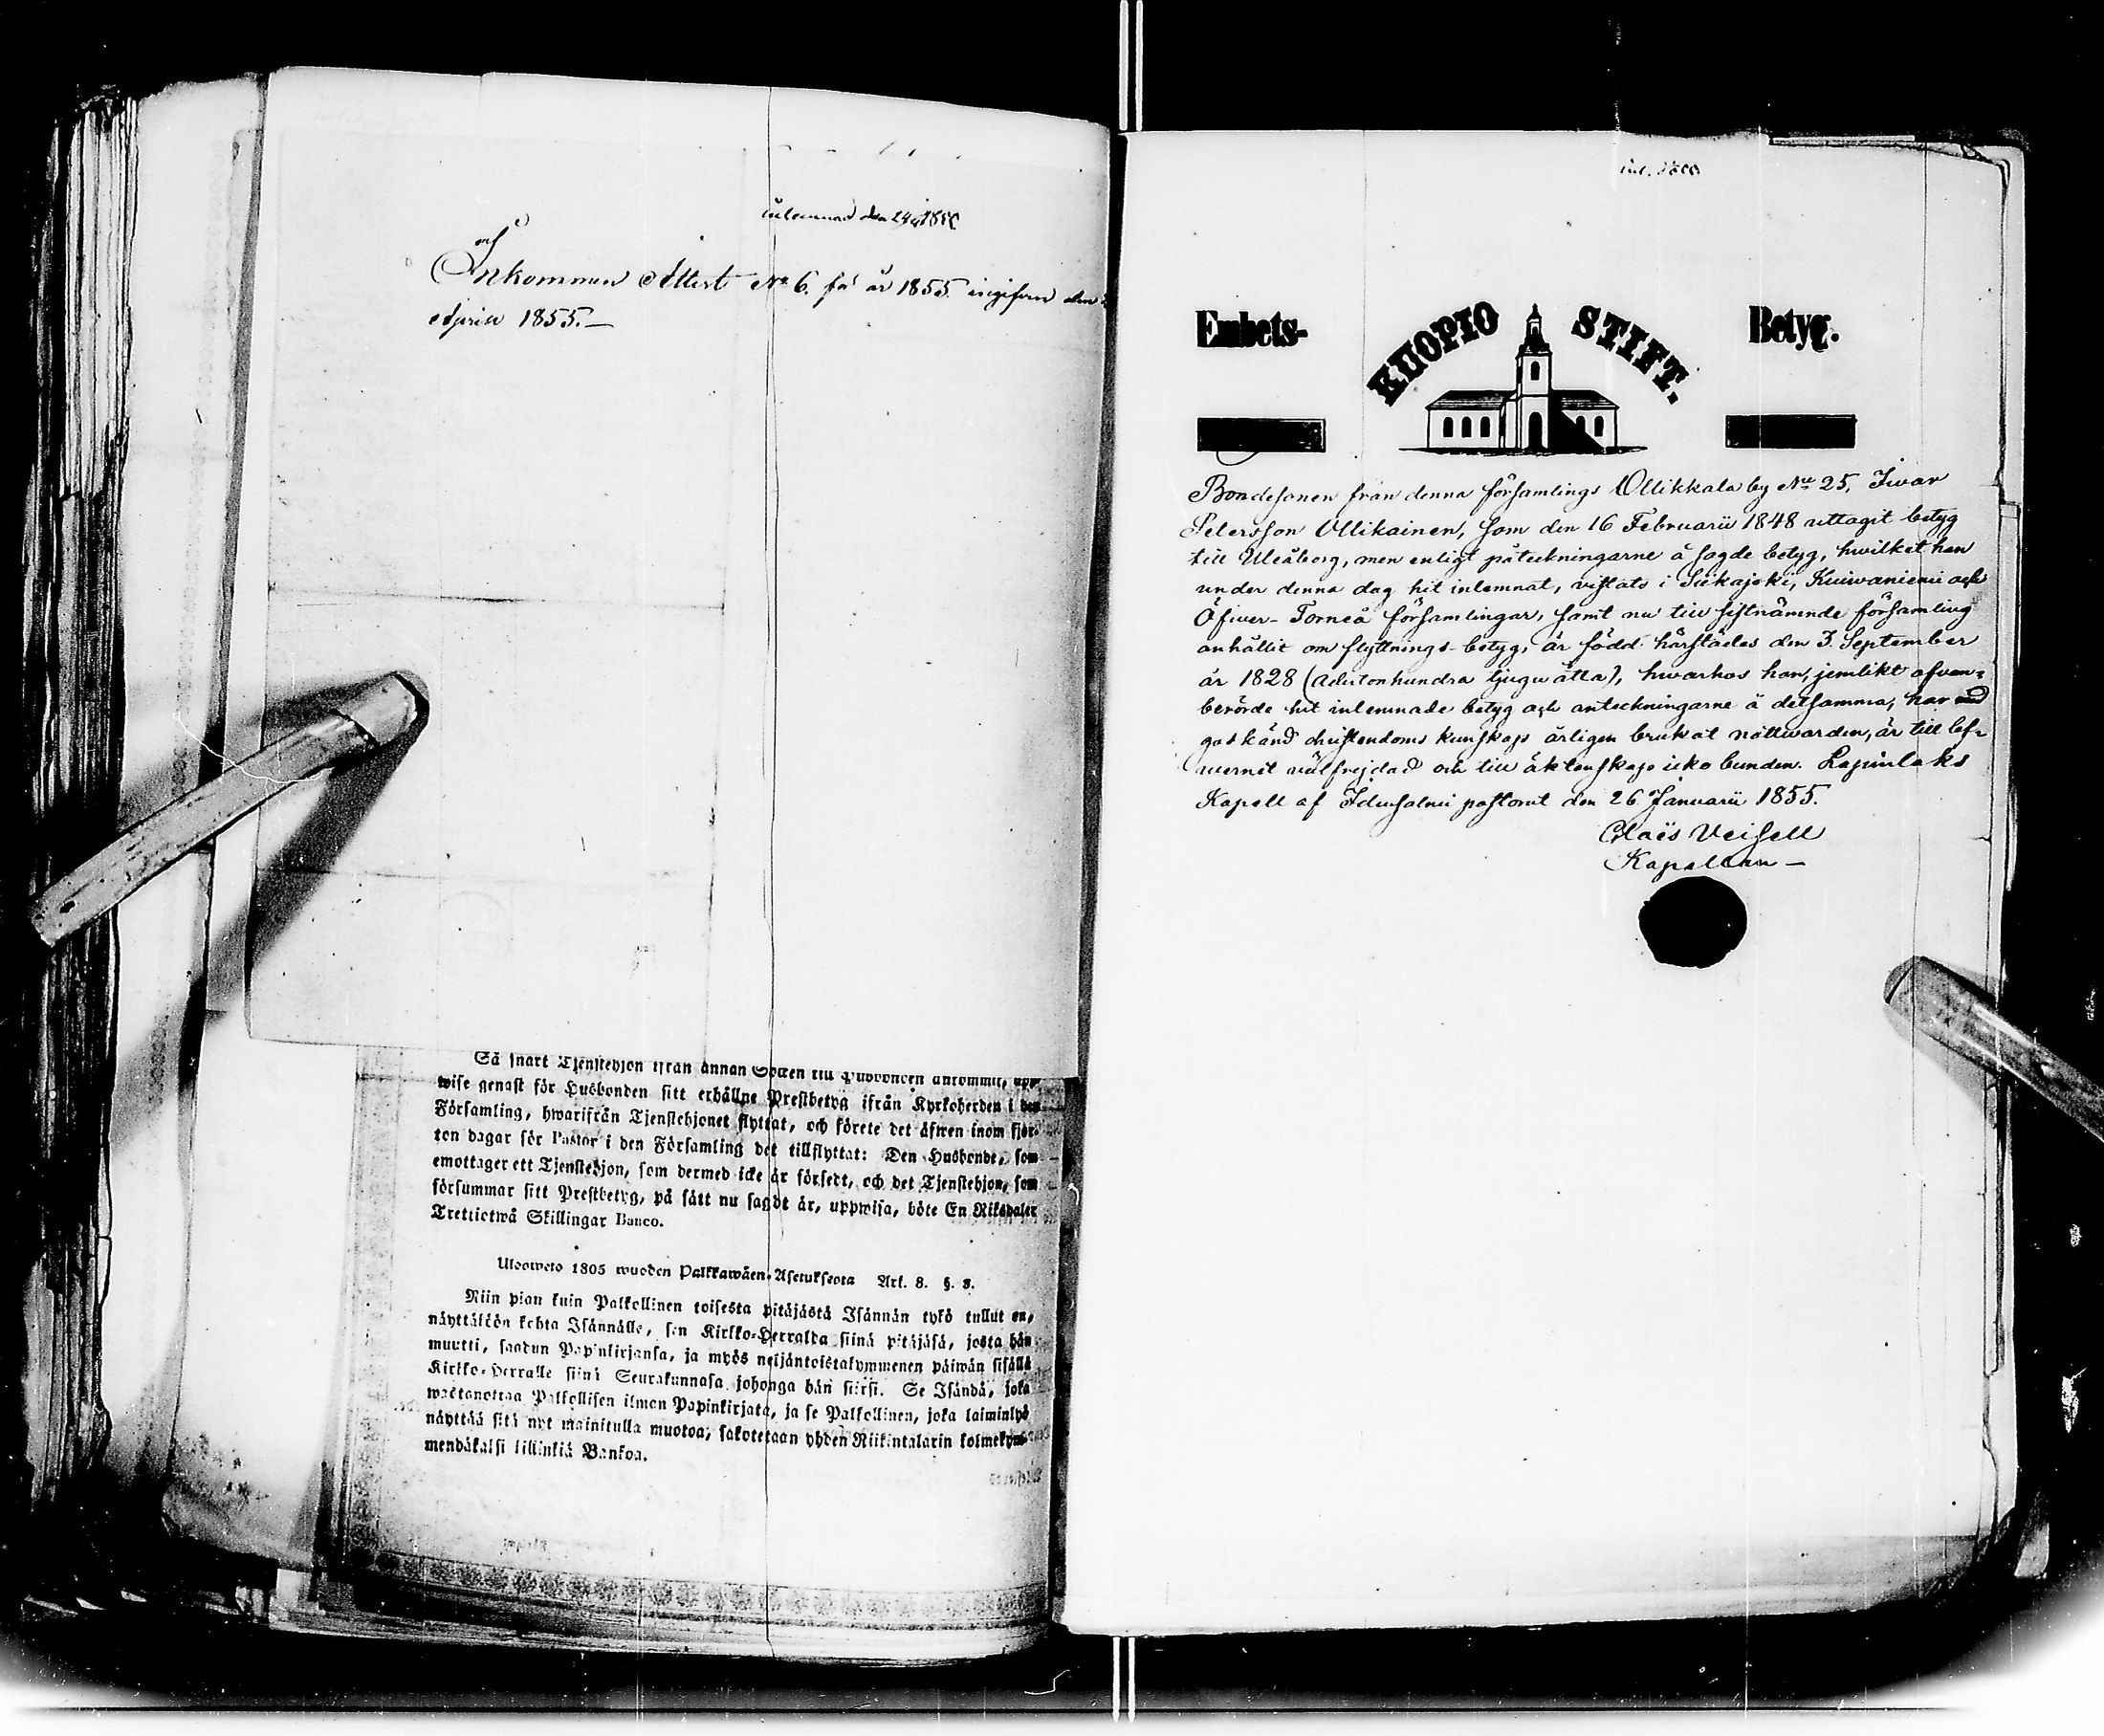 och
Inkommen Attest No 6. för år 1855 ingifven den
April 1855.—
Så snart Tjenstehjon ifrån annan Socken till Husbonden ankommit, upp-
wise genast för Husbonden sitt erhållne Prestbetyg ifrån Kyrkoherden i den
Församling, hwarifrån Tjenstehjonet flyttat, och förete det äfwen inom fjor-
ton dagar för Pastor i den Församling det tillflyttat: Den Husbonde, som
emottager ett Tjenstehjon, som dermed icke är försedt, och det Tjenstehjon, som
försummar sitt Prestbetyg, på sätt nu sagdt är, uppwisa, böte En Riksdaler
Trettiotwå Skillingar Banco.
Ulosweto 1805 wuoden Palkkawäen-Asetuksesta Art. 8. §. 8.
Niin pian kuin Palkollinen toisesta pitäjästä Isännän tykö tullut on,
näyttäköön kohta Isännälle, sen Kirkko-Herralda siinä pitäjäsä, josta hän
muutti, saadun Papinkirjansa, ja myös neljäntoistakymmenen päiwän sisällä
Kirkko-Herralle siinä Seurakunnasa johonga hän siirsi. Se Isändä, joka
wastanottaa Palkollisen ilman Papinkirjata, ja se Palkollinen, joka laiminlyö
näyttää sitä nyt mainitulla muotoa, sakotetaan yhden Riikintalarin kolmekym-
mendäkaksi killinkiä Bankoa.
Embets- KUOPIO STIFT. Betyg.
Bondesonen från denna församlings Ollikkala by No 25, Ivar
Petersson Ollikainen, som den 16 Februarii 1848 uttagit betyg
till Uleåborg, men enligt påteckningarne å sagde betyg, hwilket han
under denna dag hit inlemnat, vistats i Siikajoki, Kuiwaniemi och
Öfwer-Torneå församlingar, samt nu till sistnämnde församling
anhållit om flyttnings-betyg, är född härstädes den 3 September
år 1828 (adertonhundra tjuguåtta), hwarhos han, jemlikt ofvan-
berörde hit inlemnade betyg och anteckningarne å detsamma, har med
godkänd christendoms kunskap årligen brukat nattwarden, är till lef-
wernet välfrejdad och till äktenskap icke bunden. Lapinlaks
Kapell af Idensalmi pastorat den 26 Januarii 1855.
Claës Veisell
Kapellan —